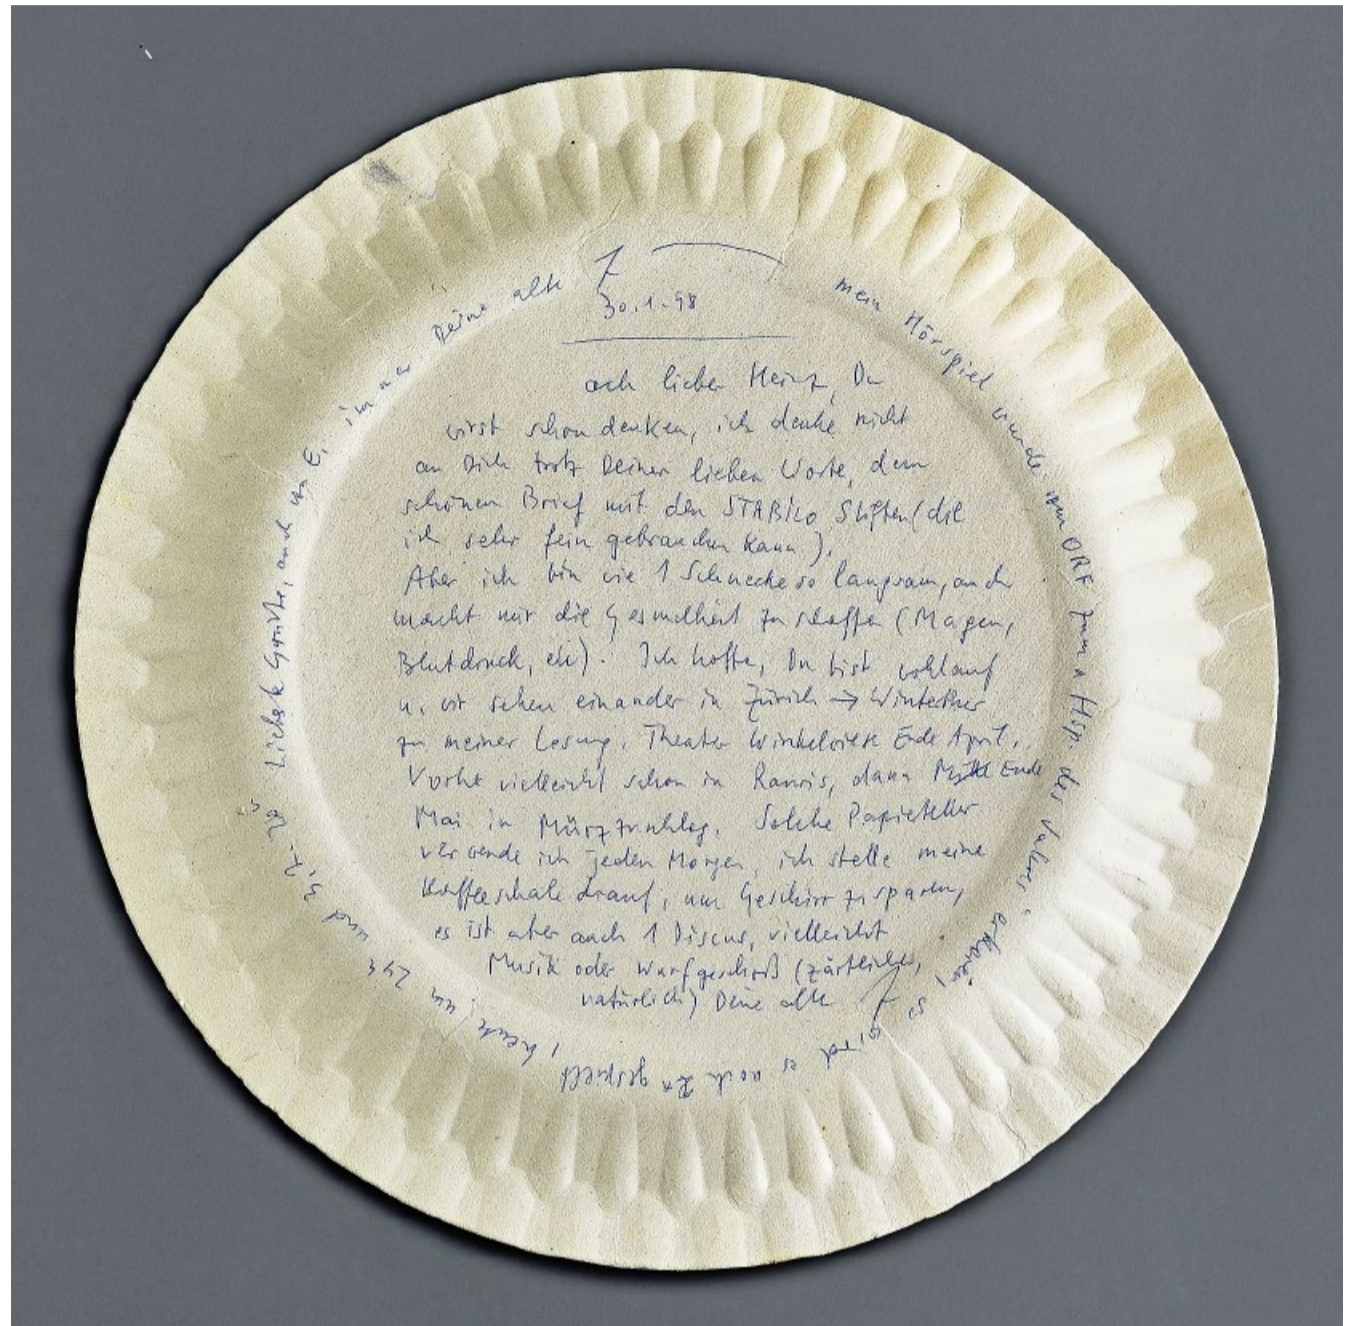 30.1.98
ach lieber Heinz, Du
wirst schon denken, ich denke nicht
an Dich trotz Deiner lieben Worte, dem
schönen Brief mit den STABILO Stiften (die
ich sehr fein gebrauchen kann).
Aber ich bin wie 1 Schnecke so langsam, auch
macht mir die Gesundheit zu schaffen (Magen,
Blutdruck, etc). Ich hoffe, Du bist wohlauf
u. wir sehen einander in Zürich → Winterthur
zu meiner Lesung, Theater Winkelwiese Ende April,
Vorher vielleicht schon in Rauris, dann Ende
Mai in Mürzzuschlag. Solche Papierteller
verwende ich jeden Morgen, ich stelle meine
Kaffeeschale drauf, um Geschirr zu sparen,
es ist aber auch 1 Discus, vielleicht
Musik oder Wurfgeschoß (zärtliches,
natürlich) Deine alte
mein Hörspiel wurde vom ORF zum Hsp. des Jahres erkoren, so wird es noch 2x gespielt, heute, um und 3.2. Liebste Grüße, auch von E, immer Deine alte